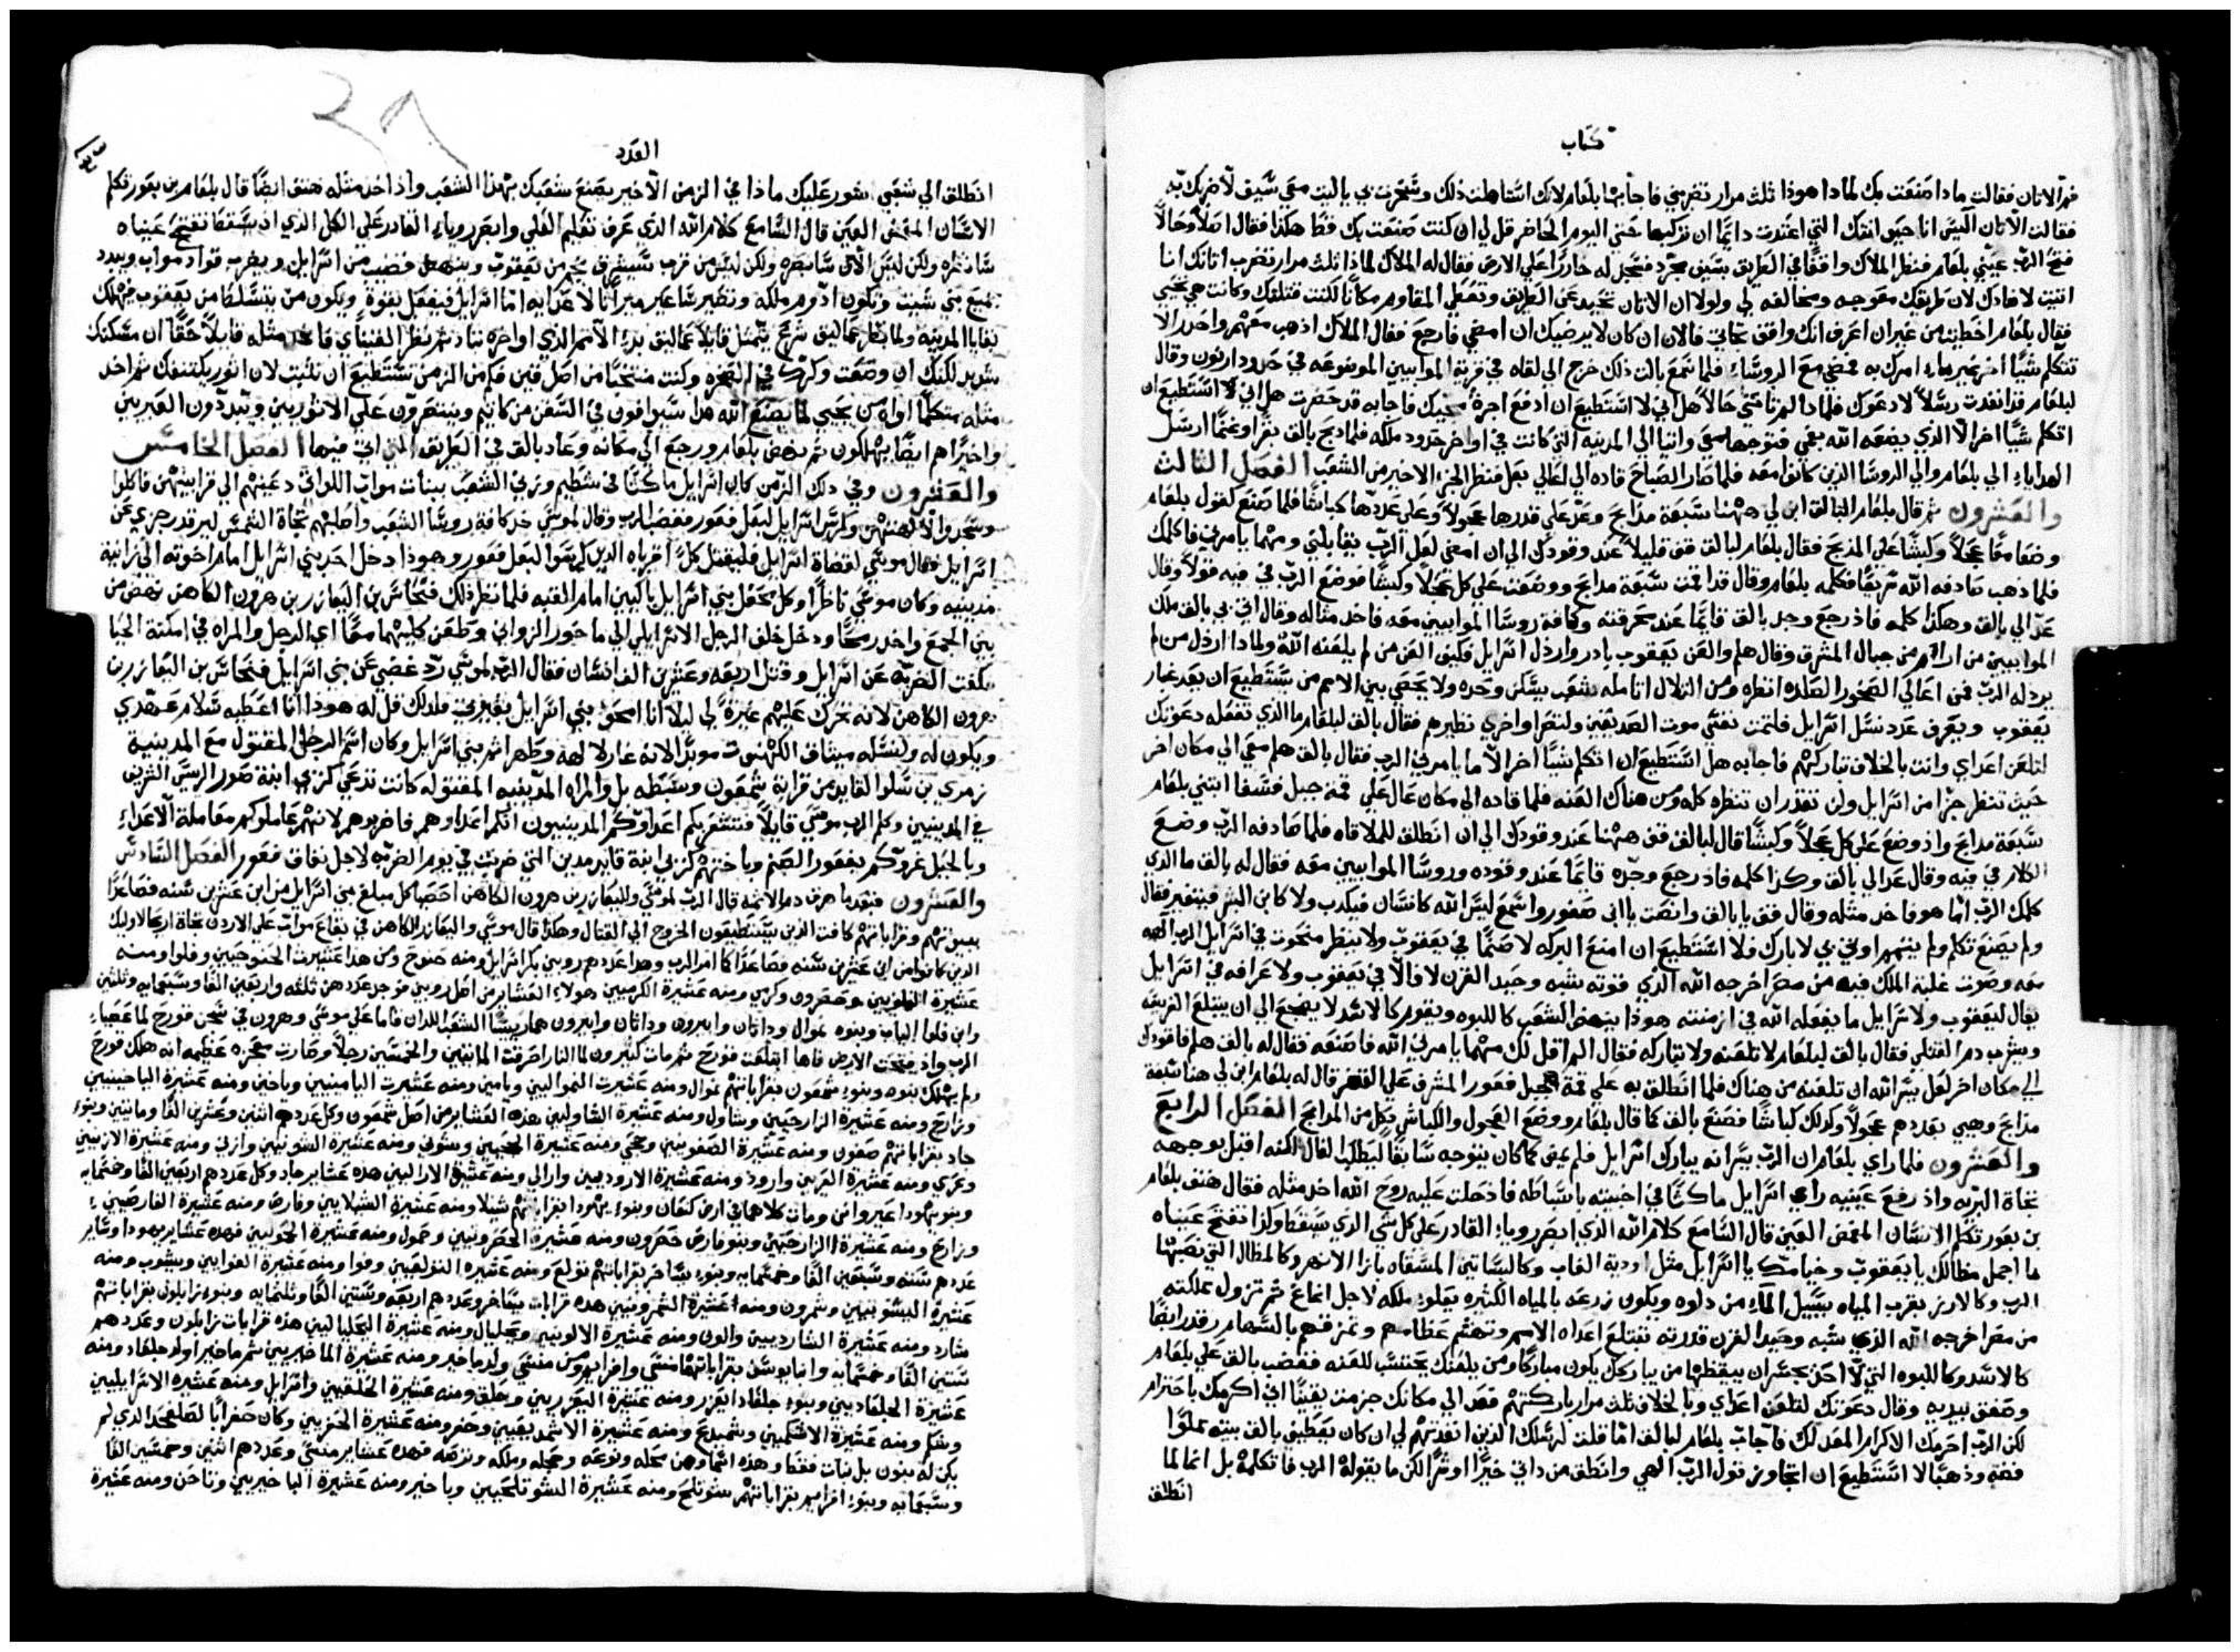 كتاب
فم الاتان فقالت ماذا صنعت بك لماذا هوذا ثلث مرار تضربني فاجابها بلعام لانك استاهلت ذلك وسخرت بي يا ليت معي سيف لاضربك به
فقالت الاتان اليس انا حيوانتك التي اعتدت دايما ان تركبها حتي اليوم الحاضر قل لي ان كنت صنعت بك قط هكذا فقال اصلا وحالا
فتح الرب عيني بلعام فنظر الملاك واقفا في الطريق بسيف مجرد فسجد له خارا علي الارض فقال له الملاك لماذا ثلث مرار تضرب اتانك انا
اتيت لاضادك لان طريقك معوجه ومخالفه لي ولولا ان الاتان تحيد عن الطريق وتعطي المقاوم مكانا لكنت قتلتك وكانت هي تحيي
فقال بلعام اخطيت من غير ان اعرف انك واقف تجاهي فالان ان كان لا يرضيك ان امضي فارجع فقال الملاك اذهب معهم واحذر الا
تتكلم شيا اخر غير ماء امرك به فمضي مع الروساء فلما سمع بالق ذلك خرج الي لقاه في قرية الموابيين الموضوعه في حدود ارنون وقال
لبلعام قد انفدت رسلا لادعوك فلماذا لم تاتني حالا هل اني لا استطيع ان ادفع اجرة مجيك فاجابه قد حضرت هل اني لا استطيع ان
اتكلم شيا اخر الا الذي يضعه الله بفمي فتوجها معا واتيا الي المدينه التي كانت في اواخر حدود ملكه فلما ذبح بالق بقرا وغنما ارسل
الهداياء الي بلعام والي الروسا الذين كانوا معه فلما صار الصباح قاده الي اعالي بعل فنظر الجزء الاخير من الشعب الفصل الثالث
والعشرون ثم قال بلعام لبالق ابن لي ههنا سبعة مذابح وعد علي قدرها عجولا وعلي عددها كباشا فلما صنع لقول بلعام
وضعا معا عجلا وكبشا علي المذبح فقال بلعام لبالق قف قليلا عند وقودك الي ان امضي لعل الرب يقابلني ومهما يامرني فاكلمك
فلما ذهب صادفه الله سريعا فكلمه بلعام وقال قد اقمت سبعة مذابح ووضعت علي كل عجلا وكبشا فوضع الرب في فيه قولا وقال
عد الي بالق وهكذا كلمه فاذ رجع وجد بالق قايما عند محرقته وكافة روسا الموابيين معه فاخذ مثاله وقال اتي بي بالق ملك
الموابيين من ارام من جبال المشرق وقال هلم والعن يعقوب بادر وارذل اسرايل فكيف العن من لم يلعنه الله ولماذا ارذل من لم
يرذله الرب فمن اعالي الصخور الصلده انظره ومن التلال اتامله شعب يسكن وحده ولا يحصي بين الامم من يستطيع ان يعد غبار
يعقوب ويعرف عدد نسل اسرايل فلتمت نفسي موت الصديقين ولتصر اواخري نظيرهم فقال بالق لبلعام ما الذي تفعله دعوتك
لتلعن اعداي وانت بالخلاف تباركهم فاجابه هل استطيع ان اتكلم شيا اخر الا ما يامرني الرب فقال بالق هلم معي الي مكان اخر
حيث تنظر جزا من اسرايل ولن تقدر ان تنظره كله ومن هناك العنه فلما قاده الي مكان عال علي قمة جبل فسغا ابتني بلعام
سبعة مذابح واذ وضع علي كل عجلا وكبشا قال لبالق قف ههنا عند وقودك الي ان انطلق للملاقاه فلما صادفه الرب وضع
الكلام في فيه وقال عد الي بالق وكذا كلمه فاذ رجع وجده قايما عند وقوده وروسا الموابيين معه فقال له بالق ما الذي
كلمك الرب اما هو فاخذ مثله وقال قف يا بالق وانصت يا ابن صفور واسمع ليس الله كانسان فيكذب ولا كابن البشر فيتغير فقال
ولم يصنع تكلم ولم يتمم اوتي بي لابارك فلا استطيع ان امنع البركه لا صنما في يعقوب ولا ينظر منحوت في اسرايل الرب الهه
معه وصوت غلبة الملك فيه من مصر اخرجه الله الذي قوته شبه وحيد القرن لا فالا في يعقوب ولا عرافه في اسرايل
يقال ليعقوب ولاسرايل ما يفعله الله في ازمنته هوذا ينهض الشعب كاللبوه ويقوم كالاسد لا يضجع الي ان يبتلع الفريسه
ويشرب دم القتلي فقال بالق لبلعام لا تلعنه ولا تباركه فقال الم اقل لك مهما يامرني الله فاصنعه فقال له بالق هلم فاقودك
الي مكان اخر لعل يسر الله ان تلعنه من هناك فلما انطلق به علي قمة جبل فغور المشرف علي القفر قال له بلعام ابن لي هنا سبعة
مذابح وهيي بعددهم عجولا وكذلك كباشا فصنع بالق كما قال بلعام ووضع العجول والكباش فكل من المذابح الفصل الرابع
والعشرون فلما راي بلعام ان الرب يسر انه يبارك اسرايل فلم يمض كما كان يتوجه سابقا ليطلب الفال لكنه اقبل بوجهه
تجاة البريه واذ رفع عينيه راي اسرايل ماكثا في اخبيته باسباطه فاذ حلت عليه روح الله اخذ مثله فقال هتف بلعام
بن بعور تكلم الانسان المغمض العين قال السامع كلام الله الذي ابصر روياء القادر علي كل شي الذي سقط وكذا تفتح عيناه
ما اجمل مظالك يا يعقوب وخيامك يا اسرايل مثل اودية الغاب وكالبساتين المسقاه بازا الانهر وكالمظال التي نصبها
الرب وكالارز بقرب المياه يسيل الماء من دلوه ويكون زرعه بالمياه الكثيره يعلوء ملكه لاجل اغاغ ثم تزول مملكته
من مصر اخرجه الله الذي شبه وحيد القرن قدرته تبتلع اعداه الامم وتهشم عظامهم وتمزقهم بالسهام رقد رابضا
كالاسد وكاللبوه التي لا احد يجسر ان يوقظها من يباركك يكون مباركا ومن يلعنك يحتسب للعنه فغضب بالق علي بلعام
وصفق بيديه وقال دعوتك لتلعن اعداي وبالخلاف ثلث مرار باركتهم فعد الي مكانك جزمت يقينا اني اكرمك باحترام
لكن الرب احرمك الاكرام المعد لك فاجاب بلعام لبالق اما قلت لرسلك الذين انفدتهم لي ان كان يعطيني بالق بيته مملوا
فضة وذهبا لا استطيع ان اتجاوز قول الرب الهي وانطق من ذاتي خيرا او شرا لكن ما يقوله الرب فاتكلمه بل انما لما
انطلق
العدد
انطلق الي شعبي اشور عليك ماذا في الزمن الاخير يصنع شعبك بهذا الشعب واذ اخذ مثله هتف ايضا قال بلعام بن بعور تكلم
الانسان المغمض العين قال السامع كلام الله الذي عرف تعليم العلي وابصر روياء القادر علي الكل الذي اذ يسقط تفتح عيناه
سانظره ولكن ليس الان سابصره ولكن ليس من قرب سيشرق نجم من يعقوب وينهض قضيب من اسرايل ويضرب قواد مواب ويبدد
جميع بني شيت وتكون ادوم ملكه وتظير ساعير ميراثا لاعدايه اما اسرايل فيفعل بقوة ويكون من يتسلط من يعقوب فيهلك
بقايا المدينه ولما نظر عماليق شرع يتمثل قايلا عماليق بدء الامم الذي اواخره تباد ثم نظر القينياي فاخذ مثله قايلا حقا ان مسكنك
شديد لكنك ان وضعت وكرك في الصخره وكنت منتخبا من اصل قين فكم من الزمن تستطيع ان تثبت لان اثور يكتنفك ثم اخذ
مثله متكلما اواه من يحيي لما يصنع الله هذا سيوافون في السفن من كاتيم وينتصرون علي الاثوريين ويبددون العبريين
واخيرا هم ايضا يهلكون ثم نهض بلعام ورجع الي مكانه وعاد بالق في الطريق التي اتي فيها الفصل الخامس
والعشرون وفي ذلك الزمن كان اسرايل ماكثا في شطيم وزني الشعب ببنات مواب اللواتي دعينهم الي قرابينهن فاكلوا
وسجدوا لالهتهن وكرس اسرايل لبعل فغور فغضب الرب وقال لموسي خذ كافة روسا الشعب واصلبهم تجاة الشمس ليرتد رجزي عن
اسرايل فقال موسي لقضاة اسرايل فليقتل كل اقرباه الذين كرسوا لبعل فغور وهوذا دخل احد بني اسرايل امام اخوته الي زانية
مدينيه وكان موسي ناظرا وكل محفل بني اسرايل باكيين امام القبه فلما نظر ذلك فنحاس بن اليعازر بن هرون الكاهن نهض من
بين الجمع واخذ رمحا ودخل خلف الرجل الاسرايلي الي ماخور الزواني وطعن كليهما معا اي الرجل والمراه في امكنة الحيا
فكفت الضربه عن اسرايل وقتل اربعه وعشرين الف انسان فقال الرب لموسي رد غضبي عن بني اسرايل فنحاس بن اليعازر بن
هرون الكاهن لانه تحرك عليهم غيرة لي ليلا انا امحق بني اسرايل بغيرتي فلذلك قل له هوذا انا اعطيه سلام عهدي
ويكون له ولنسله ميثاق الكهنوت موبدا لانه غار لالهه وطهر اثم بني اسرايل وكان اسم الرجل المقتول مع المدينية
زمري بن سالوا القايد من قرابة شمعون وسبطه بل والمراه المدينيه المقتوله كانت تدعي كزبي ابنة صور الريس الشريف
في المدينيين وكلم الرب موسي قايلا فتشعر بكم اعداوكم المدينيون انكم اعداوهم فاضربوهم لانهم عاملوكم معاملة الاعداء
وبالحيل غروكم بفغور الصنم وباختهم كزبي ابنة قايد مدين التي ضربت في يوم الضربه لاجل نفاق فغور الفصل السادس
والعشرون فبعد ما هرق دم الاثمه قال الرب لموسي ولليعازر بن هرون الكاهن احصيا كل مبلغ بني اسرايل من ابن عشرين سنه فصاعدا
ببيوتهم وقراباتهم كافت الذين يستطيعون الخروج الي القتال وهكذا قال موسي واليعازر الكاهن في بقاع مواب علي الاردن تجاة اريحا لاولئك
الذين كانوا من ابن عشرين سنه فصاعدا كما امر الرب وهذا عددهم روبين بكر اسرايل ومنه حنوخ ومن هذا عشيرت الحنوخيين وفلوا ومنه
عشيرة الفلويين وحصرون وكرمي ومنه عشيرة الكرميين هولاء العشاير من اصل روبين فوجد عددهن ثلثه واربعين الفا وسبعمايه وثلثين
وابن فلوا الياب وبنوه نموال وداتان وابيرون وداتان وابيرون هما ريسا الشعب اللذان قاما علي موسي وهرون في شجن قورح لما عصياء
الرب واذ فتحت الارض فاها ابتلعت قورح ثم مات كثيرون لما النار احرقت المايتين والخمسين رجلا وصارت معجزه عظيمه انه هلك قورح
ولم يهلك بنوه وبنوء شمعون بقراباتهم نموال ومنه عشيرت النمواليين ويامين ومنه عشيرت اليامينيين وياخين ومنه عشيرة الياخينيين
وزارح ومنه عشيرة الزارحيين وشاول ومنه عشيرة الشاوليين هذه العشاير من اصل شمعون وكل عددهم اثنين وعشرين الفا ومايتين وبنوء
جاد بقراباتهم صفون ومنه عشيرة الصفونيين وحجي ومنه عشيرة الحجيين وشوني ومنه عشيرة الشونيين وازني ومنه عشيرة الازنيين
وعري ومنه عشيرة العريين وارود ومنه عشيرة الاروديين واراليي ومنه عشيرة الاراليين هذه عشاير جاد وكل عددهم اربعين الفا وخمسمايه
وبنو يهودا عير واونن ومات كلاهما في ارض كنعان وبنوء يهودا بقراباتهم شيلا ومنه عشيرة الشيلاييين وفارص ومنه عشيرة الفارصيين
وزارح ومنه عشيرة الزارحيين وبنو فارص حصرون ومنه عشيرة الحصرونيين وحمول ومنه عشيرة الحموليين فهذه عشاير يهودا وساير
عددهم سته وسبعين الفا وخمسمايه وبنوء يساخر بقراباتهم تولع ومنه عشيره التولعيين وفوا ومنه عشيرة الفوايين ويشوب ومنه
عشيرة اليشوبيين وشمرون ومنه عشيرة الشمرونيين هذه قرابات يساخر وعددهم اربعه وستين الفا وثلثمايه وبنوء زابلون بقراباتهم
شارد ومنه عشيرة الشارديين والون ومنه عشيرة الالونيين ويحليال ومنه عشيرة اليحلياليين هذه قرابات زابلون وعددهم
ستين الفا وخمسمايه وابنا يوسف بقراباتهما منسي وافرايم ومن منسي ولد ماخير ومنه عشيرة الماخيريين ثم ماخير اولد جلعاد ومنه
عشيرة الجلعاديين وبنوء جلعاد ايعزر ومنه عشيرة اليعزريين وحلق ومنه عشيرة الحلقيين واسرايل ومنه عشيره الاسرايليين
وشكم ومنه عشيرة الشكميين وشميدع ومنه عشيرة الشميدعيين وحفر ومنه عشيرة الحفريين وكان حفر ابا لصلفحد الذي لم
يكن له بنون بل بنات فقط وهذه اسماوهن محله ونوعه وحجله وملكه وترصه فهذه عشاير منسي وعددهم اثنين وخمسين الفا
وسبعمايه وبنوء افرايم بقراباتهم شوتلح ومنه عشيرة الشوتلحيين وباخير ومنه عشيرة الباخيريين وتاحن ومنه عشيرة